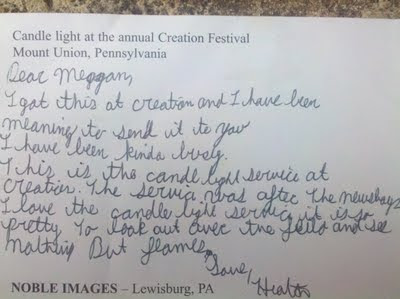 Candle light at the annual Creation Festival
Mount Union, Pennsylvania
Dear Meggan,
I got this at creation and I have been
meaning to send it to you
I have been kinda busy.
This is the candle light service at
creation. The service was after the newsboys
I love the candle light service it is so
pretty to look out over the field and see
nothing But flames.
Love,
NOBLE IMAGES – Lewisburg, PA